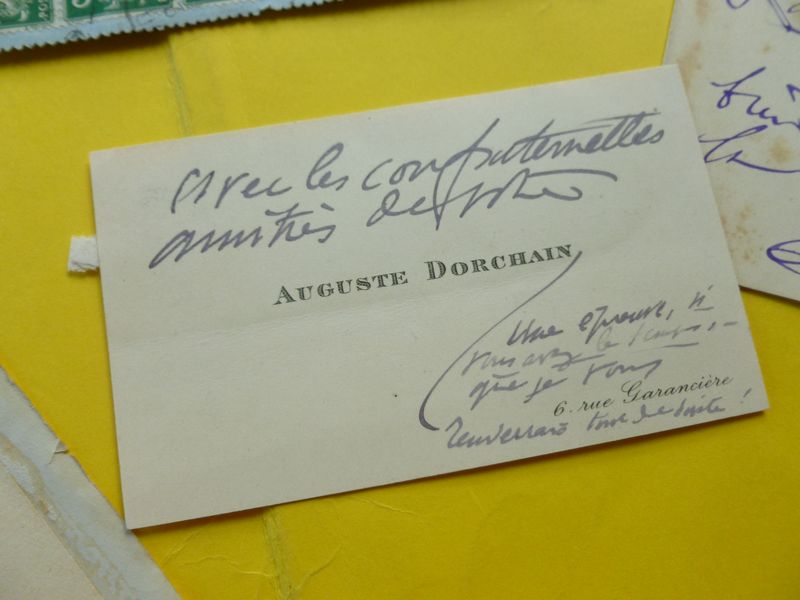 avec les confraternelles
amitiés de votre
AUGUSTE DORCHAIN
Une épreuve, si
vous avez le temps, –
que je vous
6. rue Garancière
renverrais tout de suite !